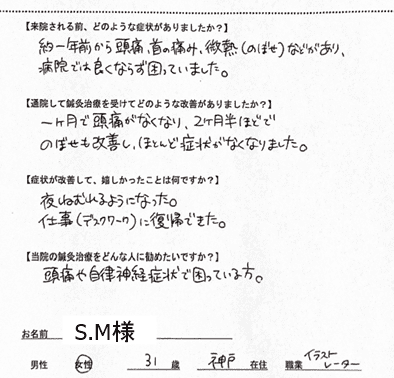 【来院される前、どのような症状がありましたか？】
約一年前から頭痛、首の痛み、微熱(のぼせ)などがあり、
病院では良くならず困っていました。
【通院して鍼灸治療を受けてどのような改善がありましたか？】
一ヶ月で頭痛がなくなり、2ヶ月半ほどで
のぼせも改善し、ほとんど症状がなくなりました。
【症状が改善して、嬉しかったことは何ですか？】
夜ねむれるようになった。
仕事(デスクワーク)に復帰できた。
【当院の鍼灸治療をどんな人に勧めたいですか？】
頭痛や自律神経症状で困っている方。
お名前 S.M様
男性 女性 31 歳 神戸 在住 職業 イラストレーター